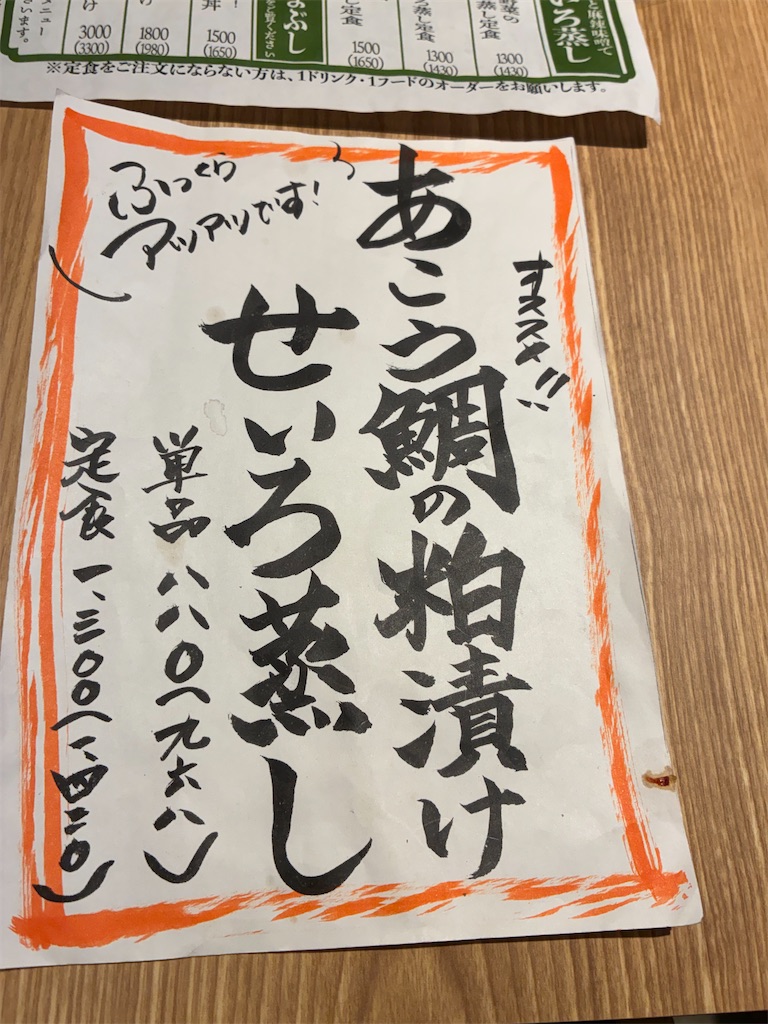 と麻辣味噌で
いろ蒸し
野菜の
蒸し定食
1300
(1430)
蒸し定食
1300
(1430)
し定食
1500
(1650)
まぶし
ください
丼
1500
(1650)
け
1800
(1980)
け
3000
(3300)
メニュー
います。
※定食をご注文にならない方は、1ドリンク・1フードのオーダーをお願いします。
オススメ!!
あこう鯛の粕漬け
せいろ蒸し
ふっくら
アツアツです!
単品 八八〇(九六八)
定食 一、三〇〇(一、四三〇)